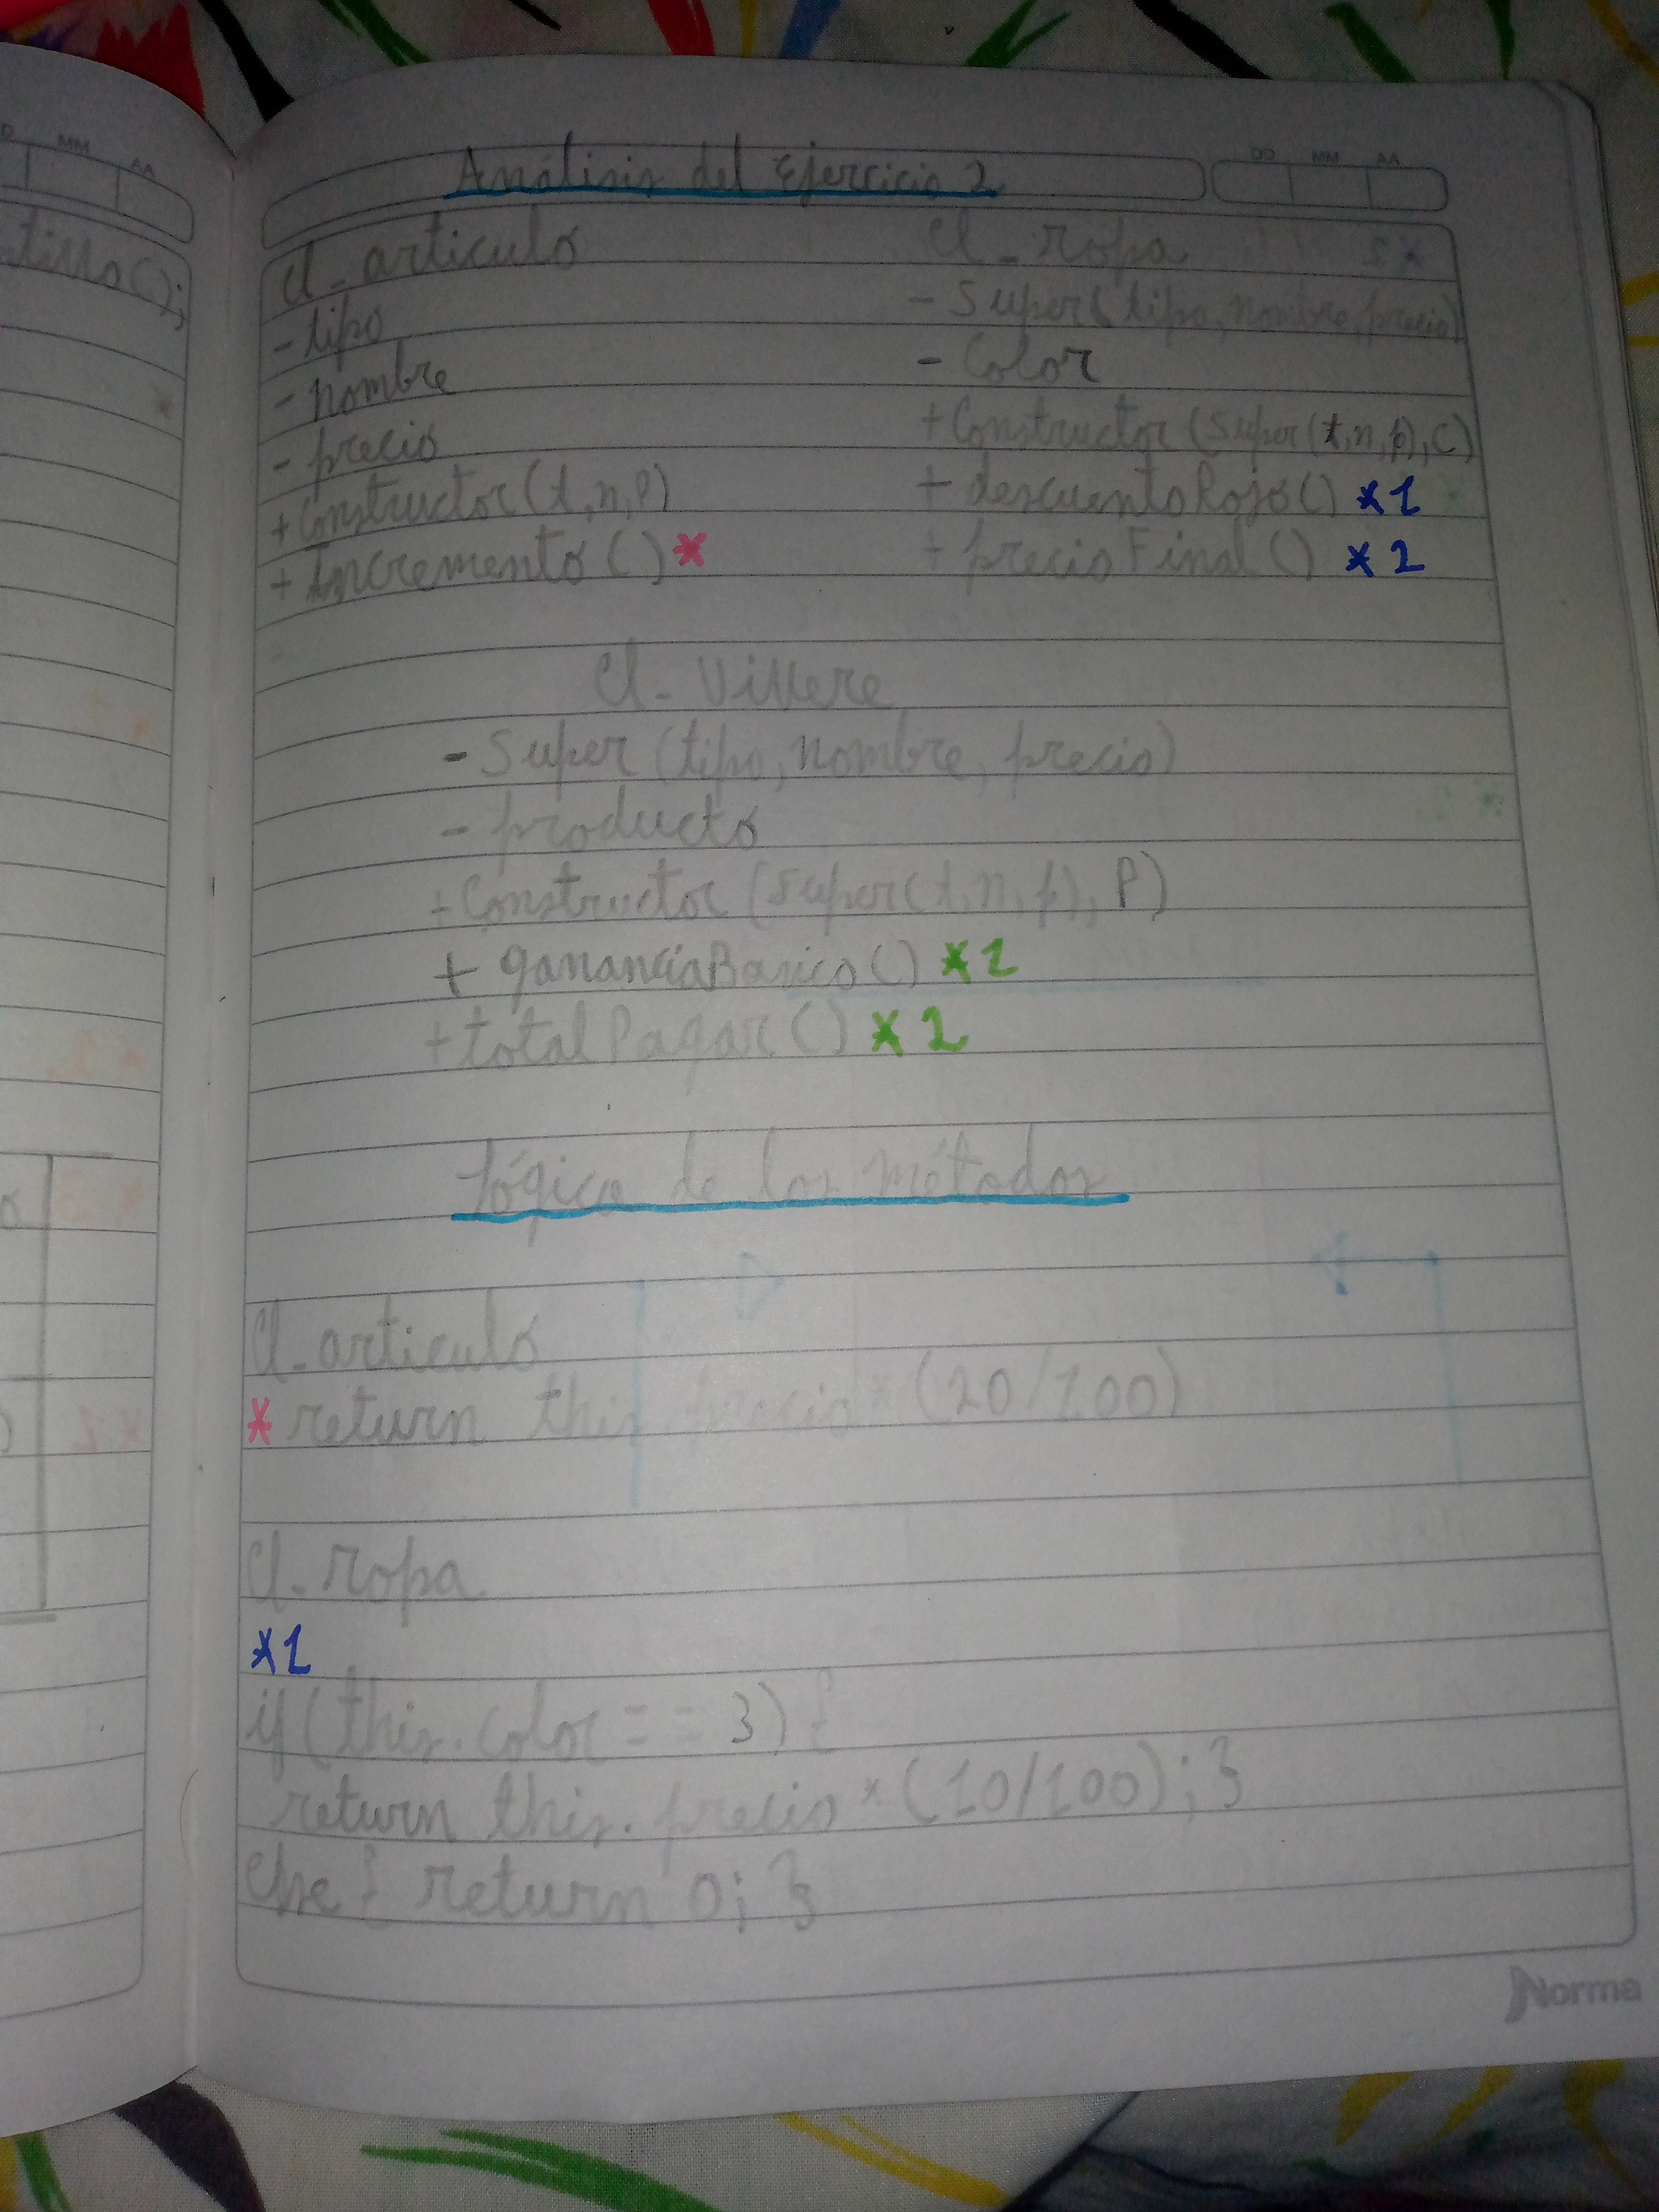 Análisis del Ejercicio 2
Cl_articulo
- tipo
- nombre
- precio
+ Constructor(t,n,P)
+ Incremento() *
Cl_ropa
- Super(tipo, nombre, precio)
- Color
+ Constructor(super(t,n,p),C)
+ descuentoRojo() *1
+ precioFinal() *2
Cl-Villere
- Super(tipo, nombre, precio)
- producto
+ Constructor(super(t,n,p),P)
+ gananciaBasico() *1
+ totalPagar() *2
Lógica de los métodos
Cl_articulo
* return this.precio * (20/100)
Cl_ropa
*1
if(this.color == 3){
return this.precio * (10/100);}
else { return 0; }
Norma
tillo();
DD MM AA
MM AA